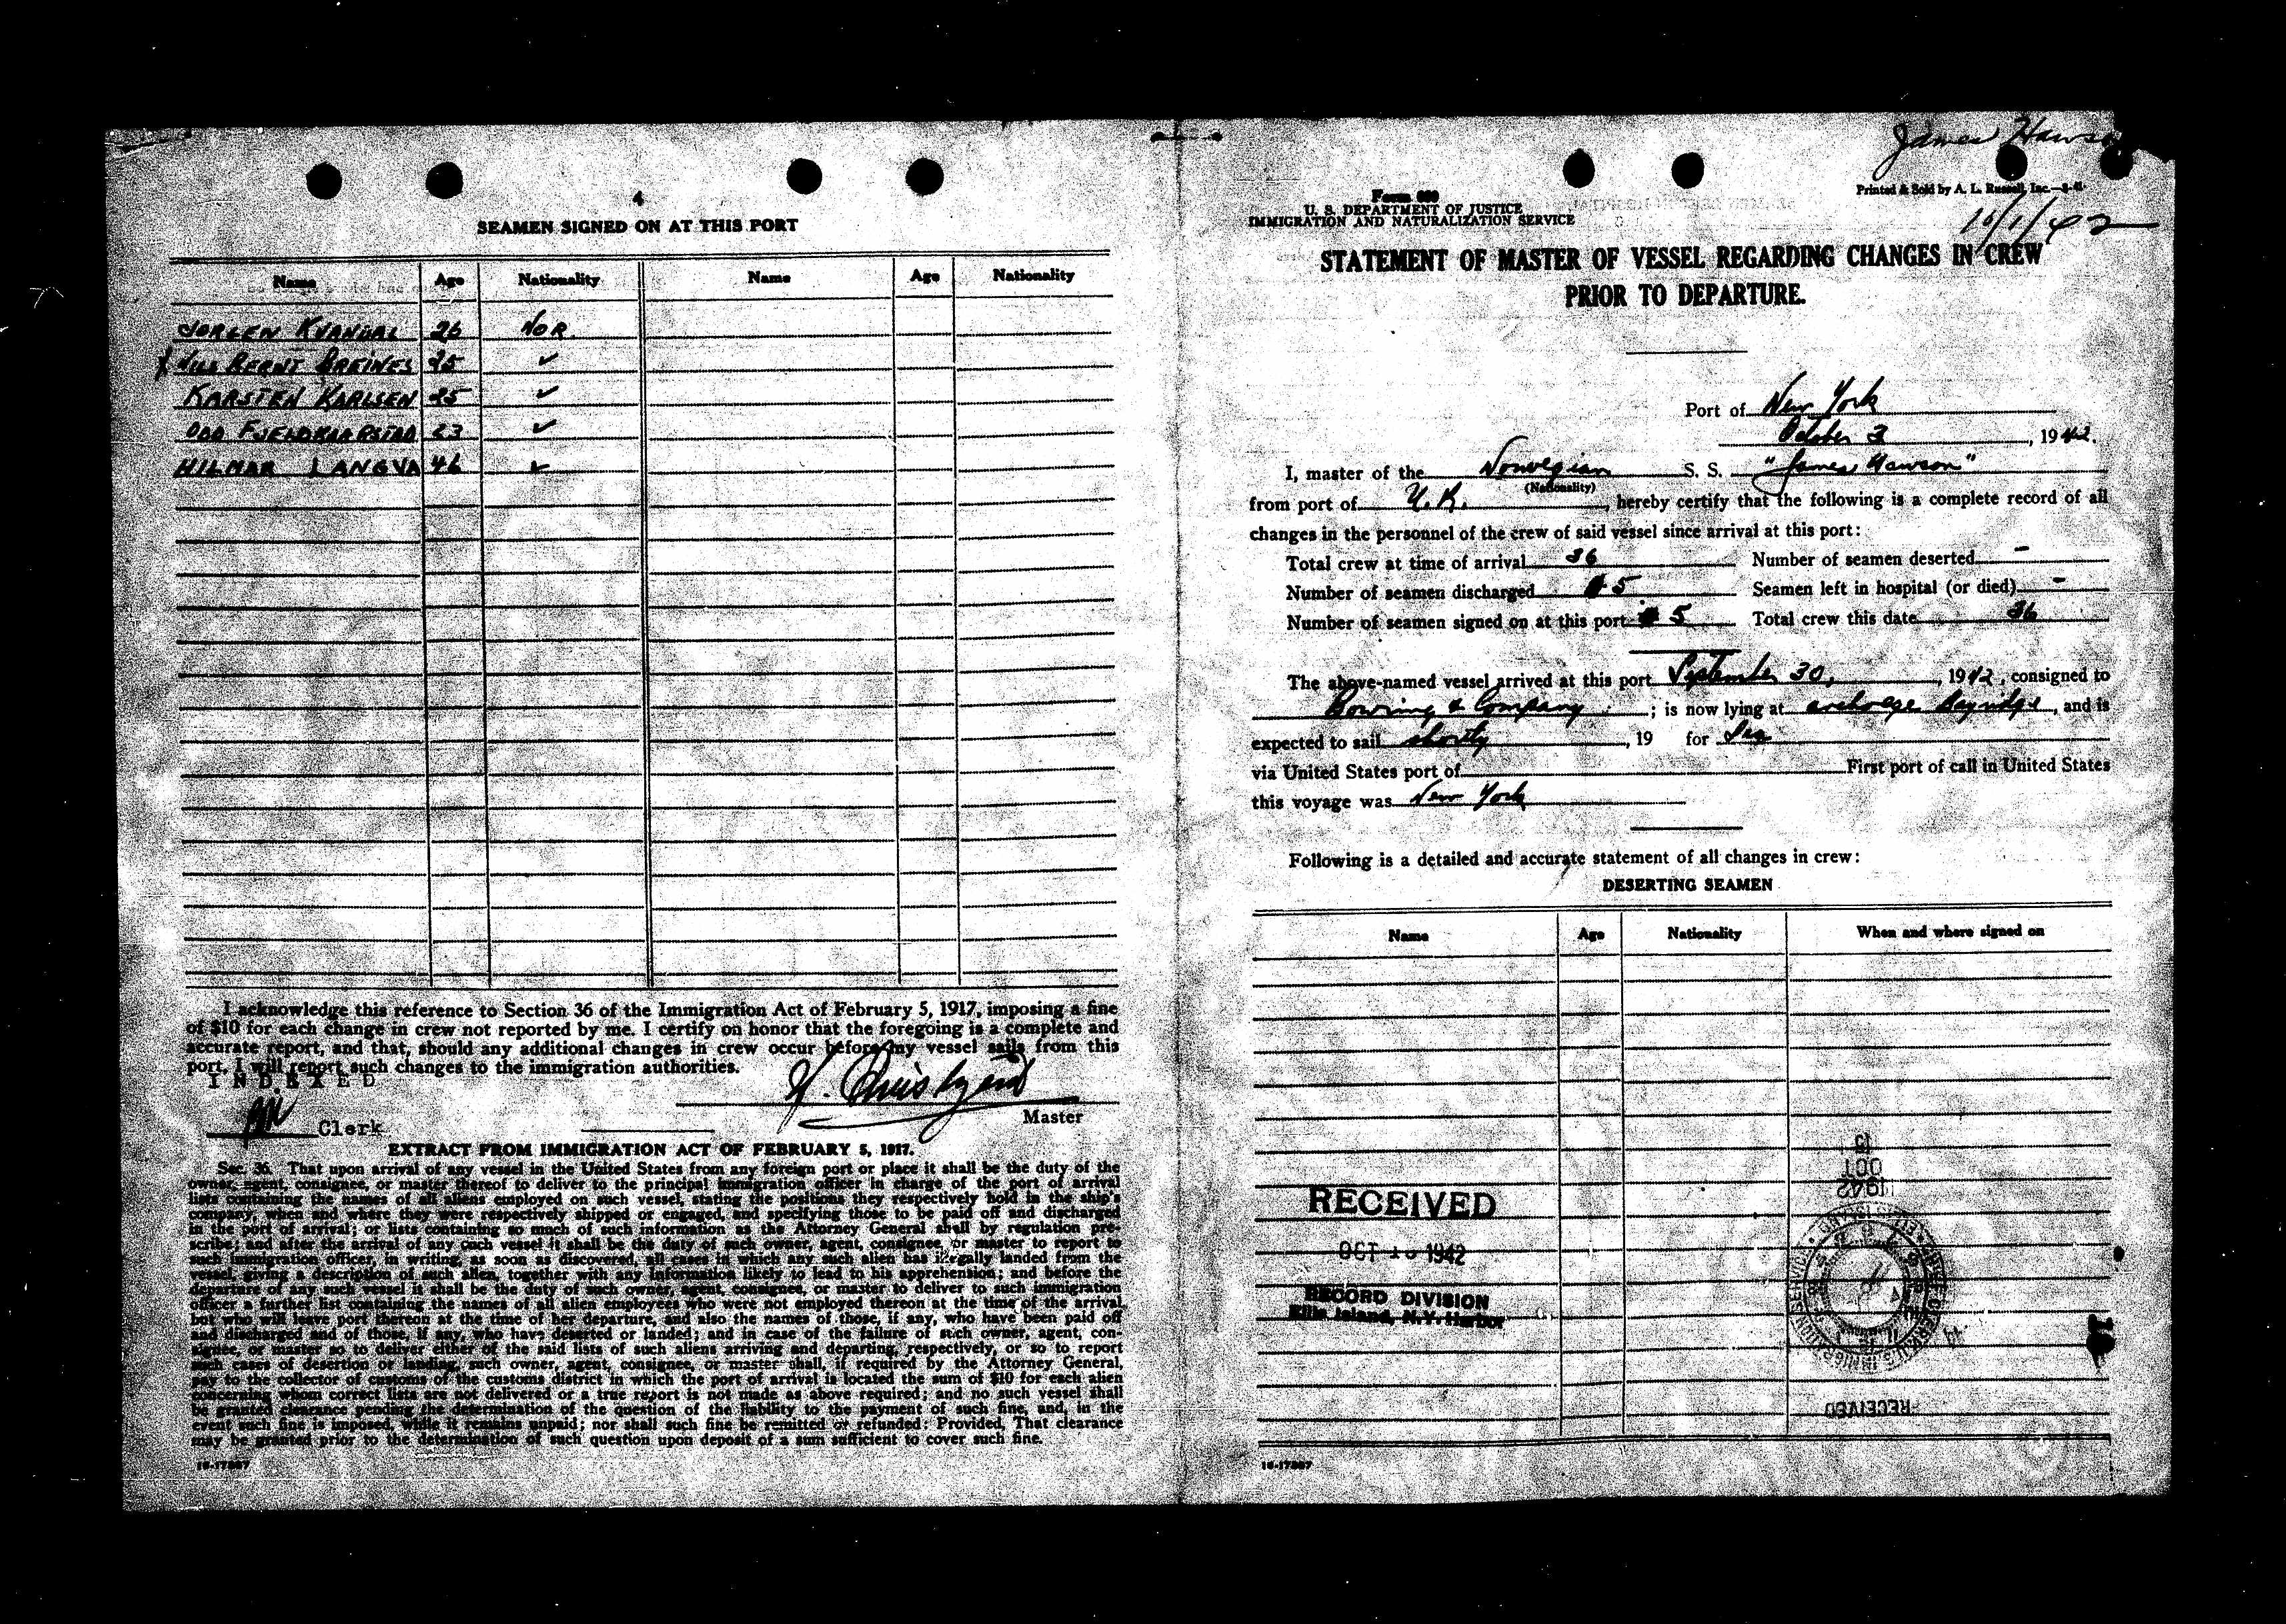 4
SEAMEN SIGNED ON AT THIS PORT
Name Age Nationality Name Age Nationality
JORGEN KVANDAL 26 NOR.
NILS BERNT BREINES 25 ✓
KARSTEN KARLSEN 25 ✓
ODD 23 ✓
HILMAR LANGVA 46 ✓
I acknowledge this reference to Section 36 of the Immigration Act of February 5, 1917, imposing a fine
of $10 for each change in crew not reported by me. I certify on honor that the foregoing is a complete and
accurate report, and that, should any additional changes in crew occur before my vessel sails from this
port, I will report such changes to the immigration authorities.
INDEXED
Clerk
Master
EXTRACT FROM IMMIGRATION ACT OF FEBRUARY 5, 1917.
Sec. 36. That upon arrival of any vessel in the United States from any foreign port or place it shall be the duty of the
owner, agent, consignee, or master thereof to deliver to the principal immigration officer in charge of the port of arrival
lists containing the names of all aliens employed on such vessel, stating the positions they respectively hold in the ship's
company, when and where they were respectively shipped or engaged, and specifying those to be paid off and discharged
in the port of arrival; or lists containing so much of such information as the Attorney General shall by regulation pre-
scribe; and after the arrival of any such vessel it shall be the duty of such owner, agent, consignee, or master to report to
such immigration officer, in writing, as soon as discovered, all cases in which any such alien has illegally landed from the
vessel, giving a description of such alien, together with any information likely to lead to his apprehension; and before the
departure of any such vessel it shall be the duty of such owner, agent, consignee, or master to deliver to such immigration
officer a further list containing the names of all alien employees who were not employed thereon at the time of the arrival,
but who will leave port thereon at the time of her departure, and also the names of those, if any, who have been paid off
and discharged and of those, if any, who have deserted or landed; and in case of the failure of such owner, agent, con-
signee, or master so to deliver either of the said lists of such aliens arriving and departing, respectively, or so to report
such cases of desertion or landing, such owner, agent, consignee, or master shall, if required by the Attorney General,
pay to the collector of customs of the customs district in which the port of arrival is located the sum of $10 for each alien
concerning whom correct lists are not delivered or a true report is not made as above required; and no such vessel shall
be granted clearance pending the determination of the question of the liability to the payment of such fine, and, in the
event such fine is imposed, while it remains unpaid; nor shall such fine be remitted or refunded: Provided, That clearance
may be granted prior to the determination of such question upon deposit of a sum sufficient to cover such fine.
16-17367
James Hawson
Printed & Sold by A. L. Russell, Inc.
10/1/42
Form 680
U. S. DEPARTMENT OF JUSTICE
IMMIGRATION AND NATURALIZATION SERVICE
STATEMENT OF MASTER OF VESSEL REGARDING CHANGES IN CREW
PRIOR TO DEPARTURE.
Port of New York
October 3, 1942.
I, master of the Norwegian S. S. "James Hawson"
(Nationality)
from port of U.K., hereby certify that the following is a complete record of all
changes in the personnel of the crew of said vessel since arrival at this port:
Total crew at time of arrival 36 Number of seamen deserted -
Number of seamen discharged 5 Seamen left in hospital (or died) -
Number of seamen signed on at this port 5 Total crew this date 36
The above-named vessel arrived at this port September 30, 1942, consigned to
Bowring & Company; is now lying at anchorage Bayridge, and is
expected to sail shortly, 19 for Sea
via United States port of First port of call in United States
this voyage was New York
Following is a detailed and accurate statement of all changes in crew:
DESERTING SEAMEN
Name Age Nationality When and where signed on
15
OCT
1942
RECEIVED
OCT 1942
RECORD DIVISION
Ellis Island, N.Y. Harbor
RECEIVED
16-17367